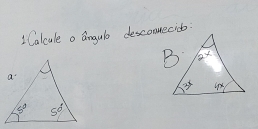 1 Calcule o ângulo desconhecido:
a.
50 50°
B.
2x
3x 4x